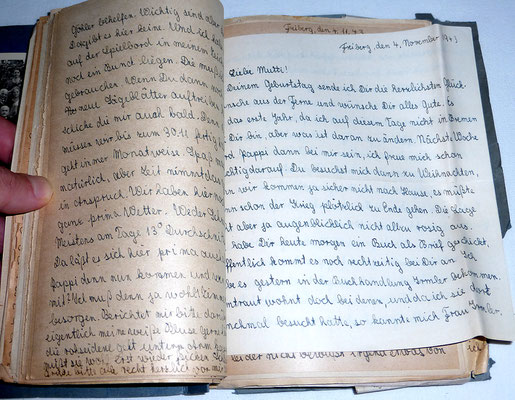 Göller behelfen. Wichtig sind aber
Da gibt es hier keine. Und ich
auf der Spielbord in meinem
noch ein Bund liegen. Die muß
gebrauchen. Wenn Du dann
neue Sägeblätter auftreiben
schicke die mir auch bald. Denn
müssen wir bis zum 30.11 fertig
geht immer Monatweise. Spaß
natürlich, aber Zeit nimmt das
in Anspruch. Wir haben hier
ganz prima Wetter. Weder
Meistens am Tage 13° Durchschnitt
Da läßt es sich hier prima aus
Pappi denn nur kommen und
mit? Ich muß denn ja wohl
besorgen. Berichtet mir bitte
eigentlich meine weiße Bluse
die rohseidene geht unterm
Freiberg, den 4.11.43
Freiberg, den 4. November 1943
Liebe Mutti!
Deinem Geburtstag sende ich Dir die herzlichsten Glück-
wünsche aus der Ferne und wünsche Dir alles Gute. Es
das erste Jahr, da ich auf diesen Tage nicht in Bremen
Dir bin, aber was ist daran zu ändern. Nächste Woche
Pappi dann bei mir sein, ich freue mich schon
darauf. Du besuchst mich dann zu Weihnachten,
wir kommen ja sicher nicht nach Hause, es müßte
schon der Krieg plötzlich zu Ende gehen. Die Lage
aber ja augenblicklich nicht allzu rosig aus.
habe Dir heute morgen ein Buch als Brief geschickt,
hoffentlich kommt es noch rechtzeitig bei Dir an. Ich
es gestern in der Buchhandlung bekommen.
wohnt doch bei denen, und da ich sie dort
manchmal besucht hatte, so kannte mich Frau
leider nicht
irgend etwas von